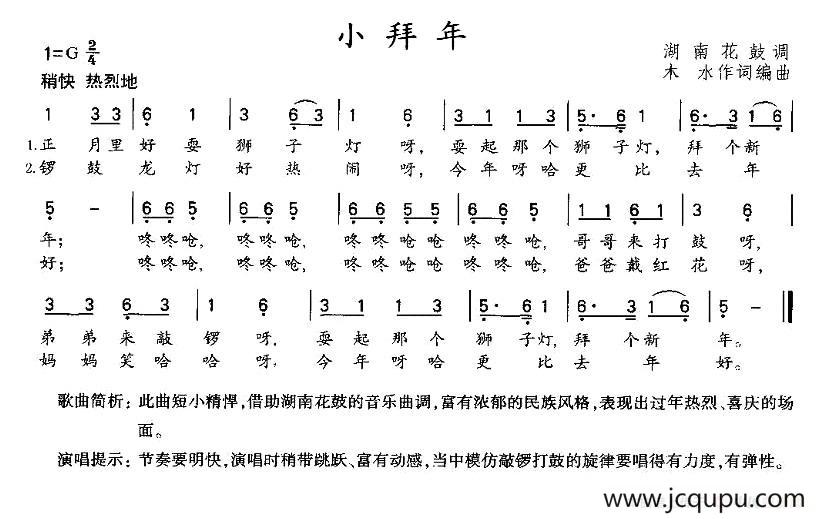 小拜年
1=G 2/4
湖南花鼓调
稍快 热烈地
木 水作词编曲
1 3 3 | 6 1 | 3 6 3 | 1 6 | 3 1 1 3 | 5· 6 1 | 6· 3 1 6 |
1.正 月里好耍狮子灯呀,耍起那个狮子灯,拜个新
2.锣鼓龙灯好热闹呀,今年呀哈更比去年
5 - | 6 6 5 | 6 6 5 | 6 6 5 5 | 6 6 5 | 1 1 6 1 | 3 6 |
年; 咚咚呛,咚咚呛, 咚咚呛呛咚咚呛, 哥哥来打鼓呀,
好; 咚咚呛,咚咚呛, 咚咚呛呛咚咚呛, 爸爸戴红花呀,
3 3 6 3 | 1 6 | 3 1 1 3 | 5· 6 1 | 6· 3 1 6 | 5 - ‖
弟弟来敲锣呀,耍起那个狮子灯,拜个新年。
妈妈笑哈哈呀,今年呀哈更比去年好。
歌曲简析:此曲短小精悍,借助湖南花鼓的音乐曲调,富有浓郁的民族风格,表现出过年热烈、喜庆的场
面。
演唱提示:节奏要明快,演唱时稍带跳跃、富有动感,当中模仿敲锣打鼓的旋律要唱得有力度,有弹性。
www.jcqupu.com